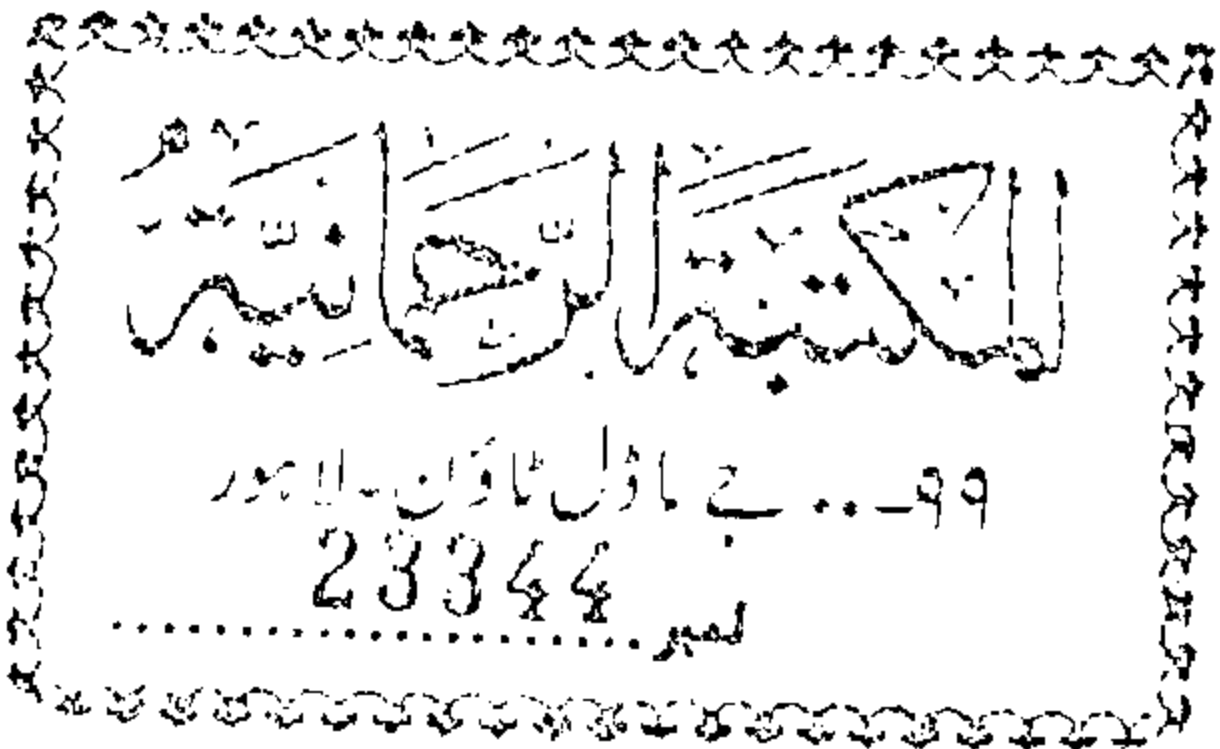 المكتبة الرحمانية
۹۹ - .. جے ماڈل ٹاؤن - لاہور
نمبر ........ 23344